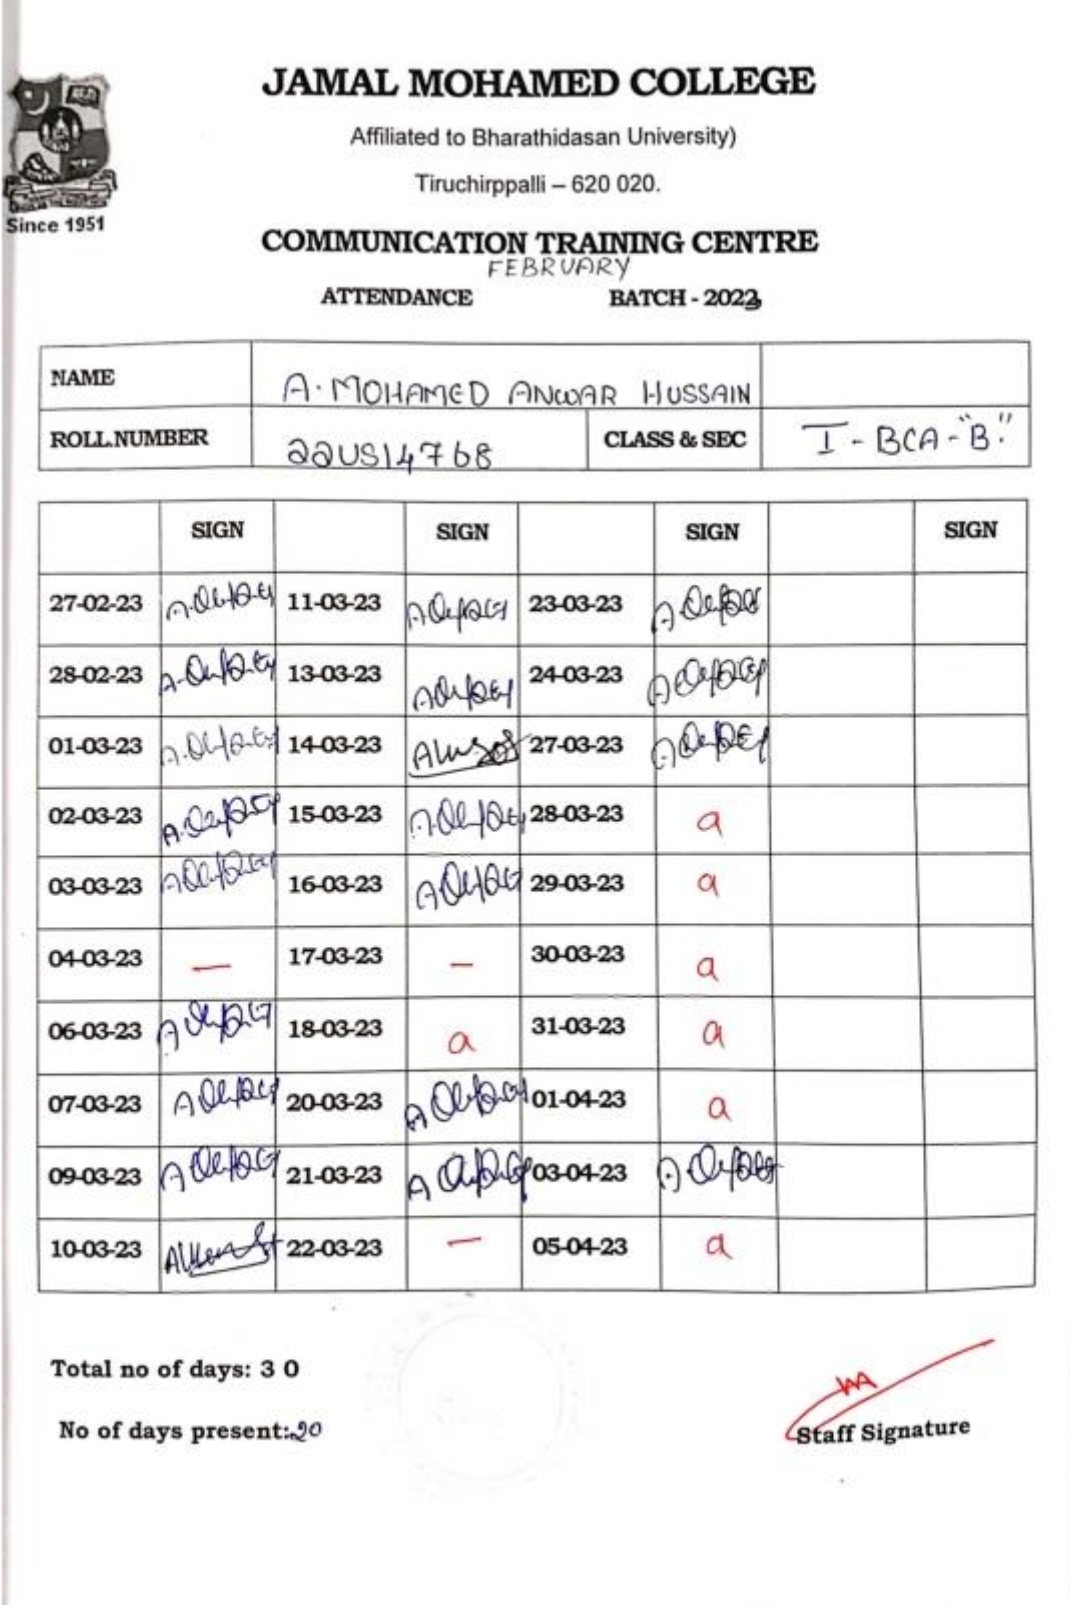 JAMAL MOHAMED COLLEGE
Affiliated to Bharathidasan University)
Tiruchirppalli – 620 020.
Since 1951
COMMUNICATION TRAINING CENTRE
FEBRUARY
ATTENDANCE BATCH - 2023
NAME A. MOHAMED ANWAR HUSSAIN
ROLL.NUMBER 22US14768 CLASS & SEC I - BCA - "B."
SIGN SIGN SIGN SIGN
27-02-23 11-03-23 23-03-23
28-02-23 13-03-23 24-03-23
01-03-23 14-03-23 27-03-23
02-03-23 15-03-23 28-03-23 a
03-03-23 16-03-23 29-03-23 a
04-03-23 — 17-03-23 – 30-03-23 a
06-03-23 18-03-23 a 31-03-23 a
07-03-23 20-03-23 01-04-23 a
09-03-23 21-03-23 03-04-23
10-03-23 22-03-23 — 05-04-23 a
Total no of days: 3 0
No of days present: 20
Staff Signature